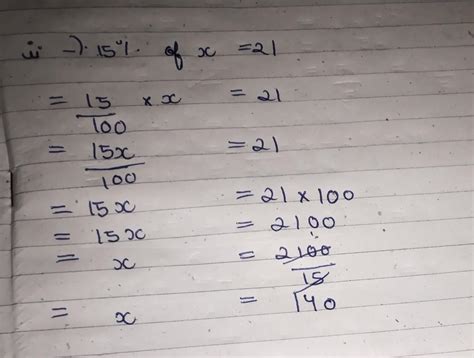 iii → 15% of x = 21
= 15/100 × x = 21
= 15x/100 = 21
= 15x = 21 × 100
= 15x = 2100
= x = 2100/15
= x = 140